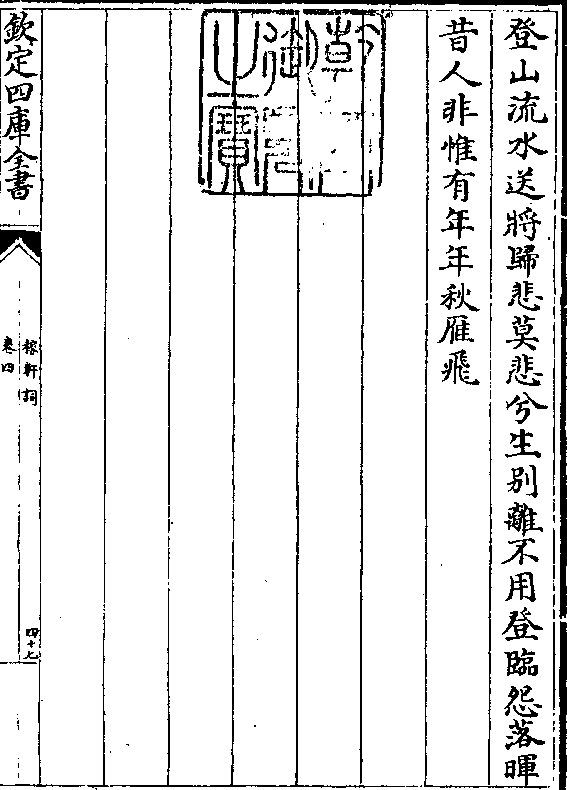 登山流水送將歸悲莫悲兮生别離不用登臨怨落暉
昔人非惟有年年秋雁飛
乾隆御覽之寳
欽定四庫全書
稼軒詞
卷四
四十七